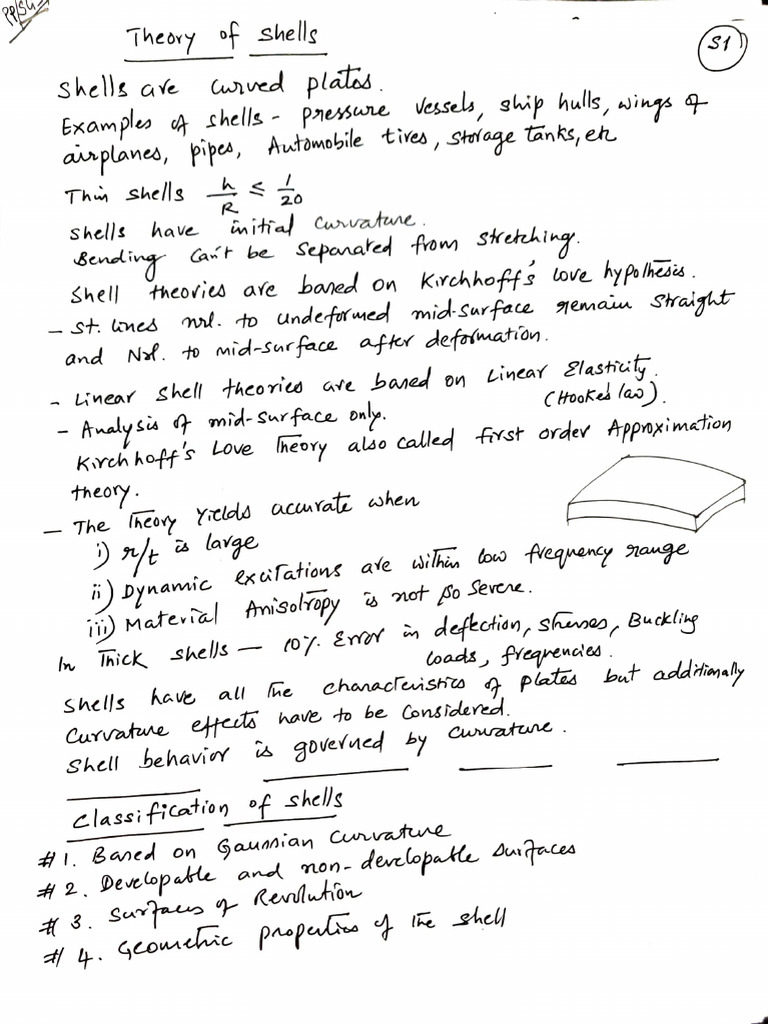 Theory of Shells
S1
Shells are curved plates.
Examples of shells - Pressure vessels, ship hulls, wings of
airplanes, pipes, Automobile tires, storage tanks, etc
Thin shells h/R ≤ 1/20
Shells have initial curvature.
Bending can't be separated from stretching.
Shell theories are based on Kirchhoff's love hypothesis.
- St. lines nrl. to undeformed mid-surface remain straight
and Nrl. to mid-surface after deformation.
- Linear shell theories are based on Linear Elasticity.
(Hooke's law).
- Analysis of mid-surface only.
Kirchhoff's Love Theory also called first order Approximation
theory.
- The Theory Yields accurate when
i) r/t is large
ii) Dynamic excitations are within low frequency range
iii) Material Anisotropy is not so severe.
In Thick shells — 10% Error in deflection, stresses, Buckling
loads, frequencies.
Shells have all the characteristics of plates but additionally
curvature effects have to be considered.
Shell behavior is governed by curvature.
Classification of shells
# 1. Based on Gaussian Curvature
# 2. Developable and non-developable surfaces
# 3. Surfaces of Revolution
# 4. Geometric properties of the shell